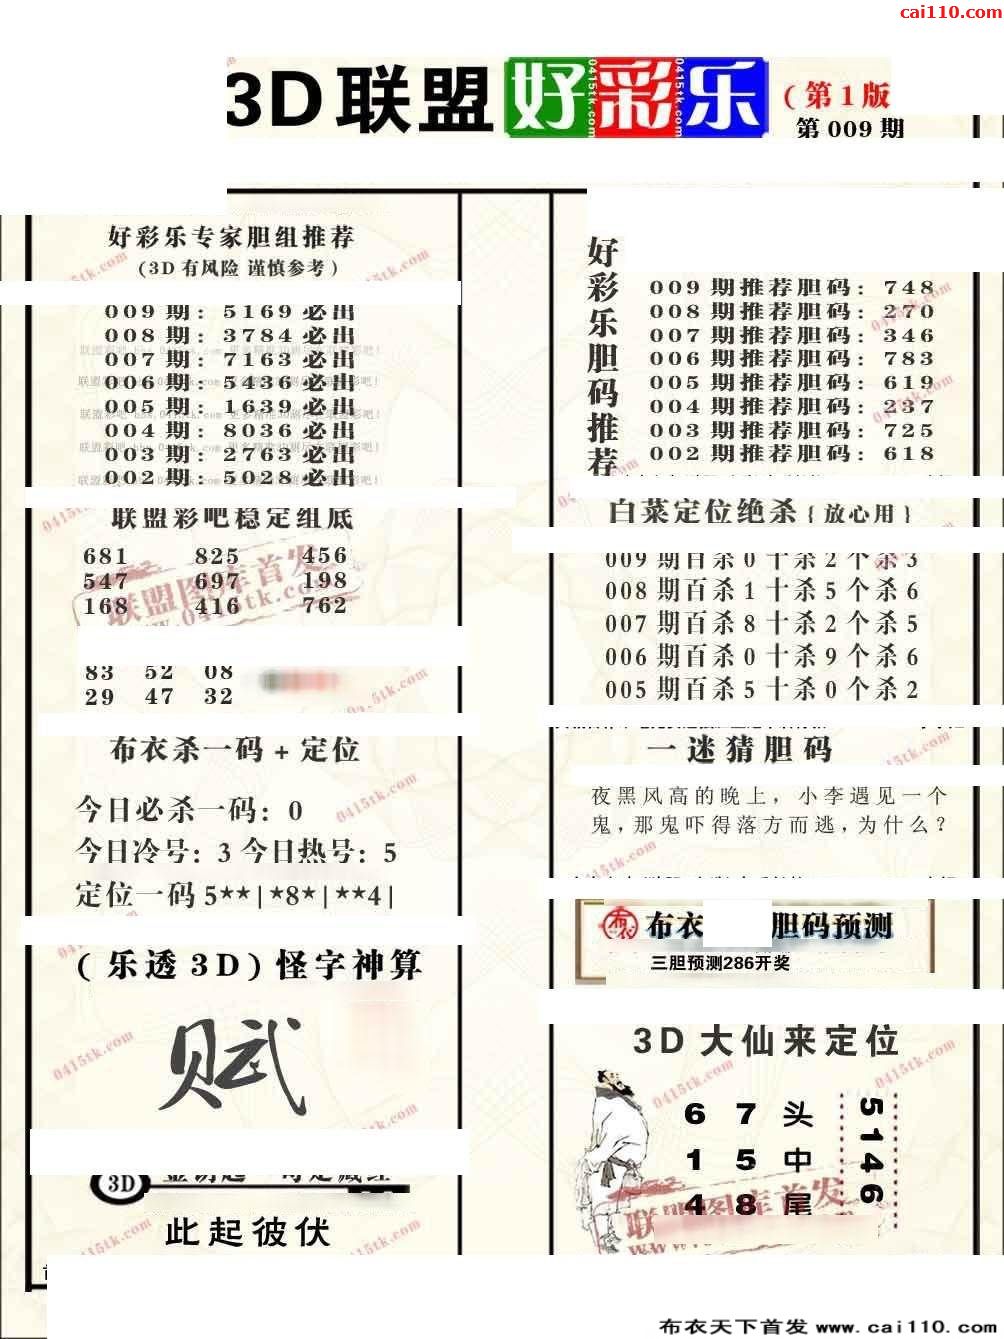 cai110.com
3D联盟 好彩乐 (第1版
第009期
好彩乐专家胆组推荐
(3D有风险 谨慎参考)
009期: 5169必出
008期: 3784必出
007期: 7163必出
006期: 5436必出
005期: 1639必出
004期: 8036必出
003期: 2763必出
002期: 5028必出
联盟彩吧稳定组底
681 825 456
547 697 198
168 416 762
83 52 08
29 47 32
布衣杀一码+定位
今日必杀一码: 0
今日冷号: 3 今日热号: 5
定位一码 5**|*8*|**4|
(乐透3D)怪字神算
赋
3D
此起彼伏
好彩乐胆码推荐
009期推荐胆码: 748
008期推荐胆码: 270
007期推荐胆码: 346
006期推荐胆码: 783
005期推荐胆码: 619
004期推荐胆码: 237
003期推荐胆码: 725
002期推荐胆码: 618
白菜定位绝杀{放心用}
009期百杀0十杀2个杀3
008期百杀1十杀5个杀6
007期百杀8十杀2个杀5
006期百杀0十杀9个杀6
005期百杀5十杀0个杀2
一迷猜胆码
夜黑风高的晚上，小李遇见一个
鬼，那鬼吓得落方而逃，为什么？
布衣 布衣 胆码预测
三胆预测286开奖
3D大仙来定位
6 7 头
1 5 中
4 8 尾
5146
联盟图库首发
0415tk.com
布衣天下首发 www.cai110.com